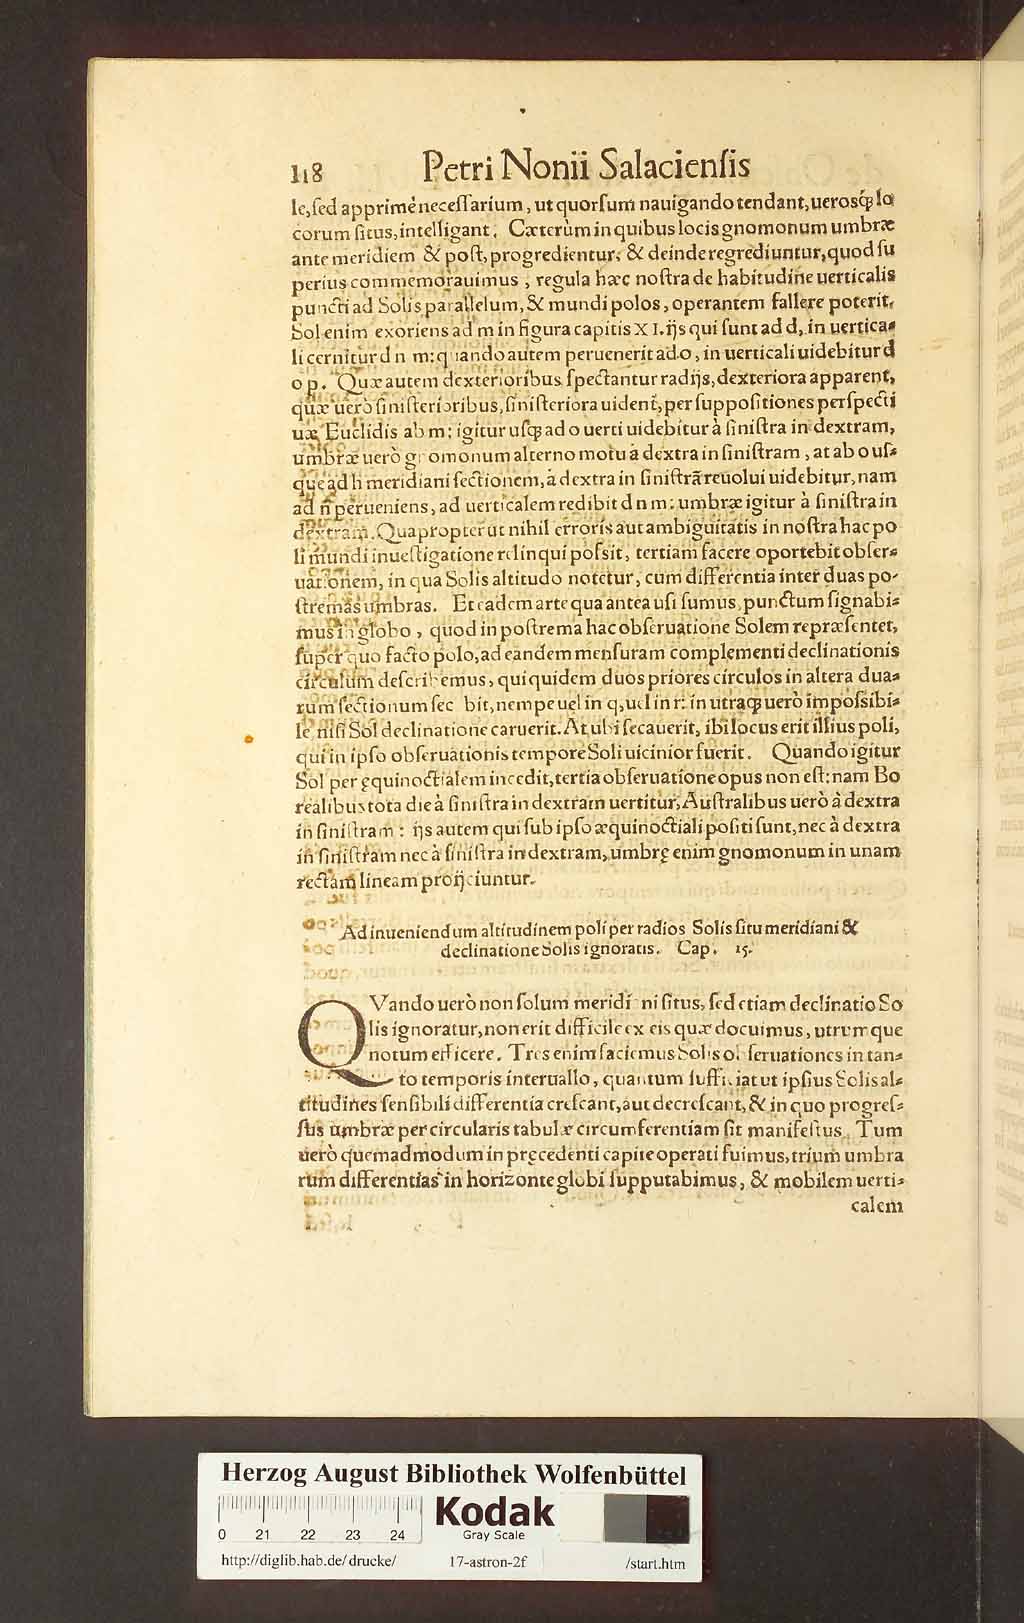 118 Petri Nonii Salaciensis
le, sed apprimè necessarium, ut quorsum nauigando tendant, uerosq́ꝫ lo
corum situs, intelligant. Cæterùm in quibus locis gnomonum umbræ
ante meridiem & post, progredientur, & deinde regrediuntur, quod su
perius commemorauimus, regula hæc nostra de habitudine uerticalis
puncti ad Solis parallelum, & mundi polos, operantem fallere poterit.
Sol enim exoriens ad m in figura capitis XI. ijs qui sunt ad d, in uertica-
li cernitur d n m: quando autem peruenerit ad o, in uerticali uidebitur d
o p. Quæ autem dexterioribus spectantur radijs, dexteriora apparent,
quæ uerò sinisterioribus, sinisteriora uident, per suppositiones perspecti
uæ Euclidis ab m: igitur usqꝫ ad o uerti uidebitur à sinistra in dextram,
umbræ uerò gnomonum alterno motu á dextra in sinistram, at ab o us-
que ad h meridiani sectionem, á dextra in sinistrã reuolui uidebitur, nam
ad n perueniens, ad uerticalem redibit d n m: umbræ igitur à sinistra in
dextram. Quapropter ut nihil erroris aut ambiguitatis in nostra hac po
li mundi inuestigatione relinqui possit, tertiam facere oportebit obser-
uationem, in qua Solis altitudo notetur, cum differentia inter duas po-
stremas umbras. Et eadem arte qua antea usi sumus, punctum signabi-
mus in globo, quod in postrema hac obseruatione Solem repræsentet,
super quo facto polo, ad eandem mensuram complementi declinationis
circulum describemus, qui quidem duos priores circulos in altera dua-
rum sectionum sec bit, nempe uel in q, uel in r: in utraqꝫ uerò impossibi-
le, nisi Sol declinatione caruerit. At ubi secauerit, ibi locus erit illius poli,
qui in ipso obseruationis tempore Soli uicinior fuerit. Quando igitur
Sol per ęquinoctialem incedit, tertia obseruatione opus non est: nam Bo
realibus tota die à sinistra in dextram uertitur, Australibus uerò à dextra
in sinistram: ijs autem qui sub ipso æquinoctiali positi sunt, nec à dextra
in sinistram nec à sinistra in dextram, umbrę enim gnomonum in unam
rectam lineam proijciuntur.
Ad inueniendum altitudinem poli per radios Solis situ meridiani &
declinatione Solis ignoratis. Cap. 15.
QVando uerò non solum meridiani situs, sed etiam declinatio So
lis ignoratur, non erit difficile ex eis quæ docuimus, utrumque
notum efficere. Tres enim faciemus Solis obseruationes in tan-
to temporis interuallo, quantum sufficiat ut ipsius Solis al-
titudines sensibili differentia crescant, aut decrescant, & in quo progres-
sus umbræ per circularis tabulæ circumferentiam sit manifestus. Tum
uerò quemadmodum in pręcedenti capite operati fuimus, trium umbra
rum differentias in horizonte globi supputabimus, & mobilem uerti-
calem
Herzog August Bibliothek Wolfenbüttel
Kodak
Gray Scale
0 21 22 23 24
http://diglib.hab.de/drucke/ 17-astron-2f /start.htm